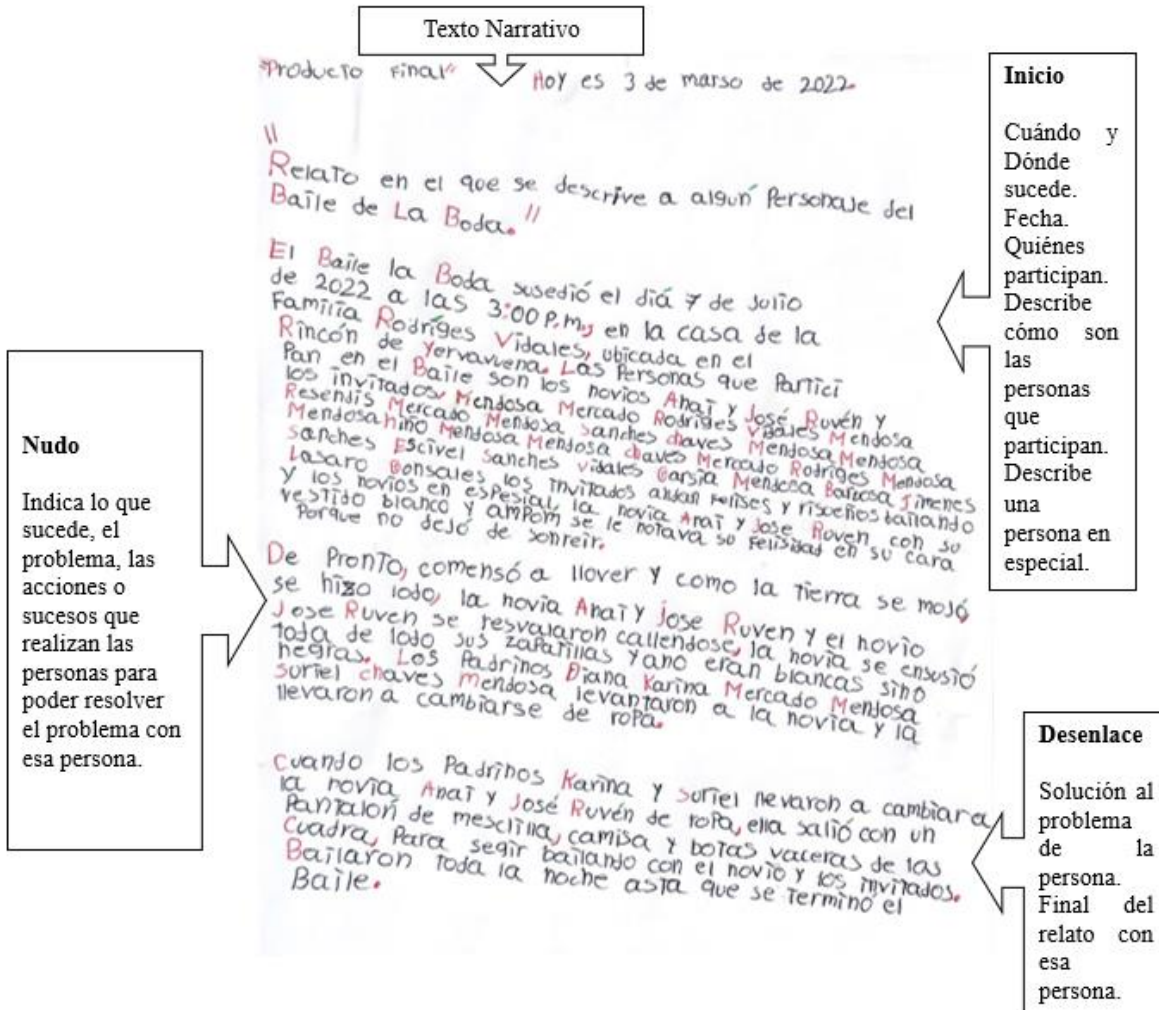 Texto Narrativo
"Producto Final" Hoy es 3 de marso de 2022.
"
Relato en el que se descrive a algún Personaje del
Baile de La Boda."
El Baile la Boda susedió el diá 7 de Julio
de 2022 a las 3:00 P.m., en la casa de la
Familia Rodríges Vidales, ubicada en el
Rincón de Yervavuena. Las Personas que Partici
Pan en el Baile son los novios Anaí y José Ruvén y
los invitados Mendosa Mercado Rodríges Vidales Mendosa
Resendis Mercado Mendosa Sanches chaves Mendosa Mendosa
Mendosa Niño Mendosa Mendosa chaves Mercado Rodríges Mendosa
Sanches Escivel Sanches vidales Garsía Mendosa Barcosa Jimenes
Lasaro Gonsales los invitados andan felises y risoeños bailando
y los novios en espesial, la novia Anaí y Jose Ruven con su
vestido blanco y ampom se le notava su felisidad en su cara
Porque no dejó de sonreir.
De Pronto, comensó a llover y como la tierra se mojó,
se hizo lodo, la novia Anaí y Jose Ruven y el novio
Jose Ruven se resvalaron callendose, la novia se ensusió
toda de lodo sus zapatillas yano eran blancas sino
negras. Los Padrinos Diana Karina Mercado Mendosa
Suriel chaves Mendosa levantaron a la novia y la
llevaron a cambiarse de ropa.
Cuando los Padrinos Karina y Suriel llevaron a cambiara
la novia Anaí y José Ruvén de ropa, ella salió con un
Pantalón de mesclilla, camisa y botas vaceras de las
Cuadra, Para segir bailando con el novio y los invitados.
Bailaron toda la noche asta que se terminó el
Baile.
Inicio
Cuándo y
Dónde
sucede.
Fecha.
Quiénes
participan.
Describe
cómo son
las
personas
que
participan.
Describe
una
persona en
especial.
Nudo
Indica lo que
sucede, el
problema, las
acciones o
sucesos que
realizan las
personas para
poder resolver
el problema con
esa persona.
Desenlace
Solución al
problema
de la
persona.
Final del
relato con
esa
persona.